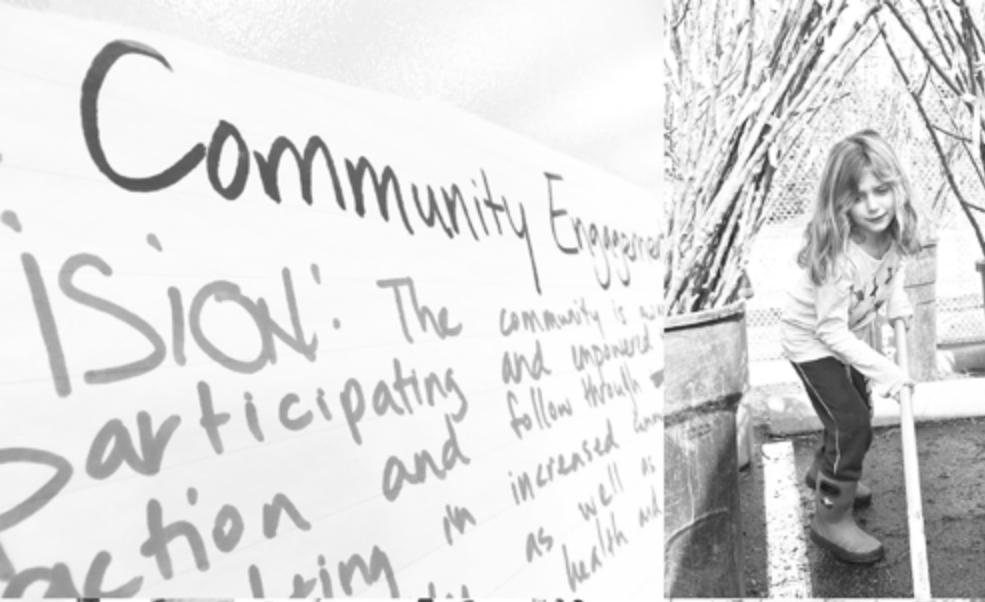 Community Engagemen
ision: The community is
Participating and empowered
action and follow through
in increased
as well as
health and